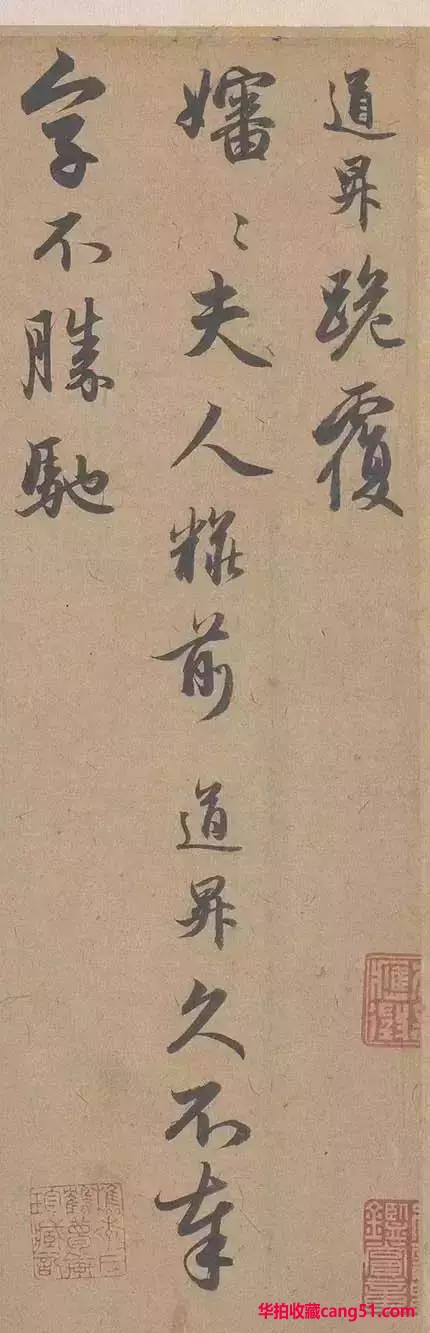 道昇跪覆
嬸〻夫人粧前道昇久不奉
字不勝馳
华拍收藏cang51.com